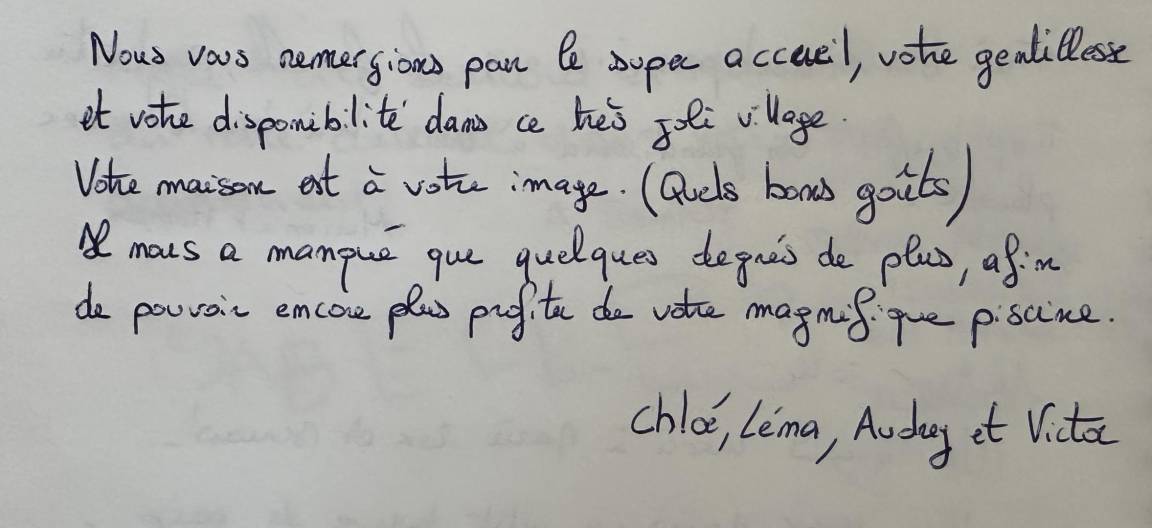 Nous vous remergions par le super accueil, votre gentillesse
et votre disponibilité dans ce très joli village.
Votre maison est à votre image. (Quels bons goûts)
Il nous a manqué que quelques degrés de plus, afin
de pouvoir encore plus profiter de votre magnifique piscine.
Chloé, Léna, Audrey et Victor